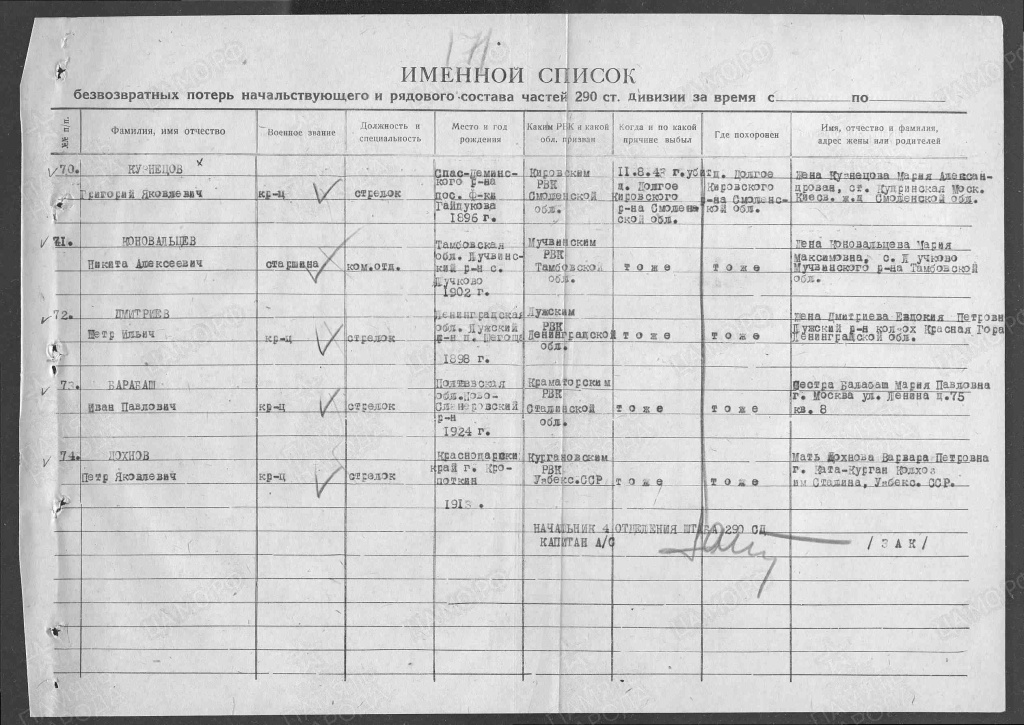 171
ИМЕННОЙ СПИСОК
безвозвратных потерь начальствующего и рядового состава частей 290 ст. дивизии за время с по
№№ п.п.
Фамилия, имя отчество
Военное звание
Должность и специальность
Место и год рождения
Каким РВК и какой обл. призван
Когда и по какой причине выбыл
Где похоронен
Имя, отчество и фамилия, адрес жены или родителей
70. КУЗНЕЦОВ
Григорий Яковлевич
кр-ц
стрелок
Спас-Деминс-
кого р-на
пос. ф-ка
Гайдукова
1896 г.
Кировским
РВК
Смоленской
обл.
11.8.43 г. убит
д. Долгое
Кировского
р-на Смолен
ской обл.
д. Долгое
Кировского
р-на Смоленс-
кой обл.
Жена Кузнецова Мария Алексан-
дровая, ст. Моск.
Киевс. ж.д Смоленской обл.
71. КОНОВАЛЬЦЕВ
Никита Алексеевич
старшина
ком.отд.
Тамбовская
обл.
кий р-н с.
1902 г.
Мучвинским
РВК
Тамбовской
обл.
т о ж е
т о ж е
Жена Коновальцева Мария
Максимовна, с.
Мучвинского р-на Тамбовской
обл.
72. ДМИТРИЕВ
Петр Ильич
кр-ц
стрелок
Ленинградская
обл. Лужский
р-н
1898 г.
Лужским
РВК
Ленинградской
обл.
т о ж е
т о ж е
Жена Дмитриева Евдокия Петровн
Лужский р-н колхох Красная Гора
Ленинградской обл.
73. БАРАБАШ
Иван Павлович
кр-ц
стрелок
Полтавская
обл.
р-н
1924 г.
Краматорским
РВК
Сталинской
обл.
т о ж е
т о ж е
Сестра Балабаш Мария Павловна
г. Москва ул. Ленина д.75
кв. 8
74. ДОХНОВ
Петр Яковлевич
кр-ц
стрелок
Краснодарски
край г. Кро-
поткин
1913 .
Кургановским
РВК
Узбекс.ССР
т о ж е
т о ж е
Мать Дохнова Варвара Петровна
г. Ката-Курган Колхоз
им Сталина, Узбекс. ССР.
НАЧАЛЬНИК 4 ОТДЕЛЕНИЯ ШТАБА 290 СД
КАПИТАН А/С / З А К /